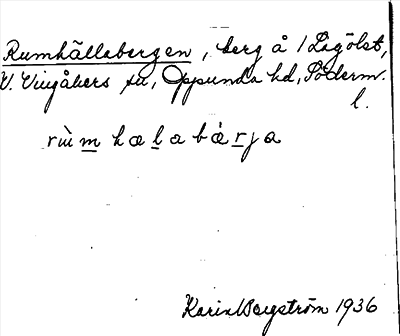 Rumhällabergen, berg å / Lagölst,
V. Vingåkers sn, Oppunda hd, Söderm.
l.
rùm hælabærja
Karin Bergström 1936